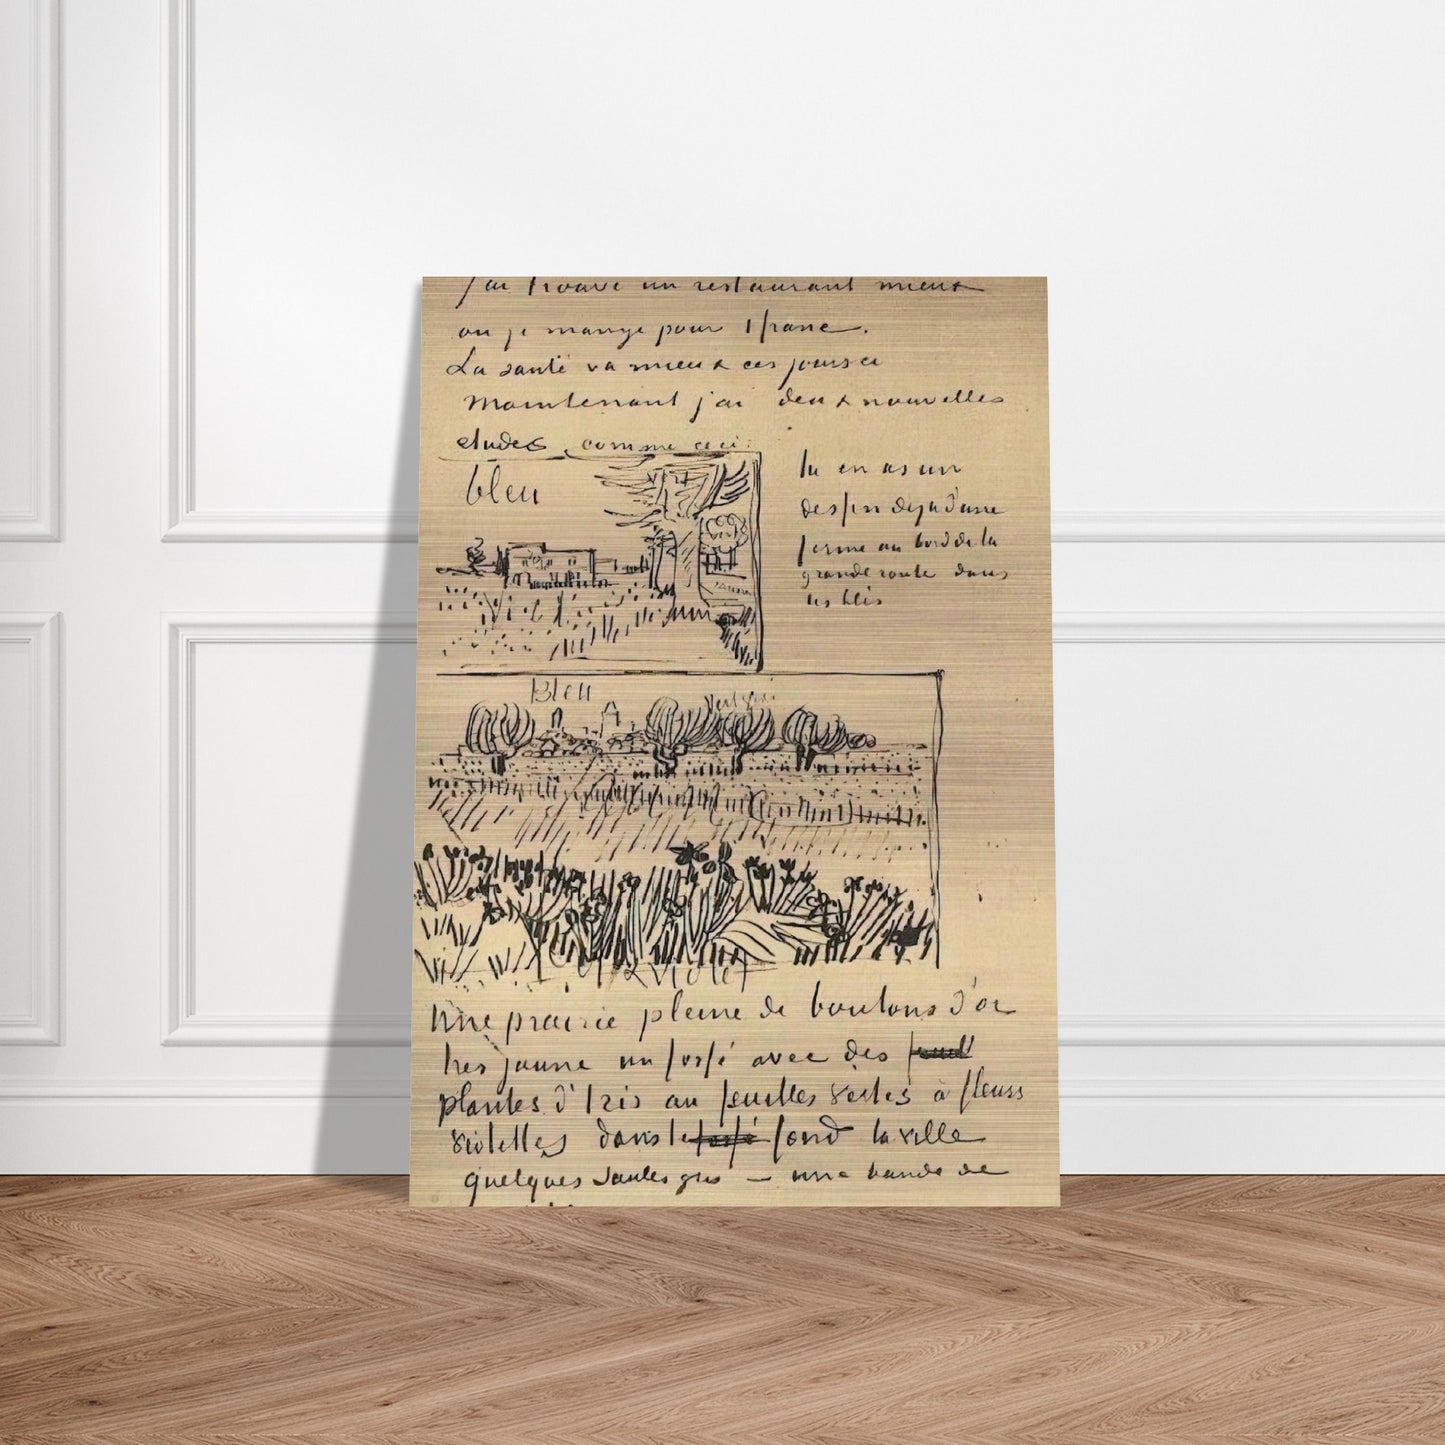 j'ai trouvé un restaurant mieux
ou je mange pour 1 franc.
La santé va mieux ces jours ci
Maintenant j'ai deux nouvelles
etudes comme ceci:
bleu
tu en as un
dessin deja d'une
ferme au bord de la
grande route dans
les blés
Bleu
Vert gris
Vert & Violet
Une prairie pleine de boutons d'or
tres jaune un fossé avec des
plantes d'Iris au feuilles vertes à fleurs
violettes dans le fond la ville
quelques saules gris – une bande de